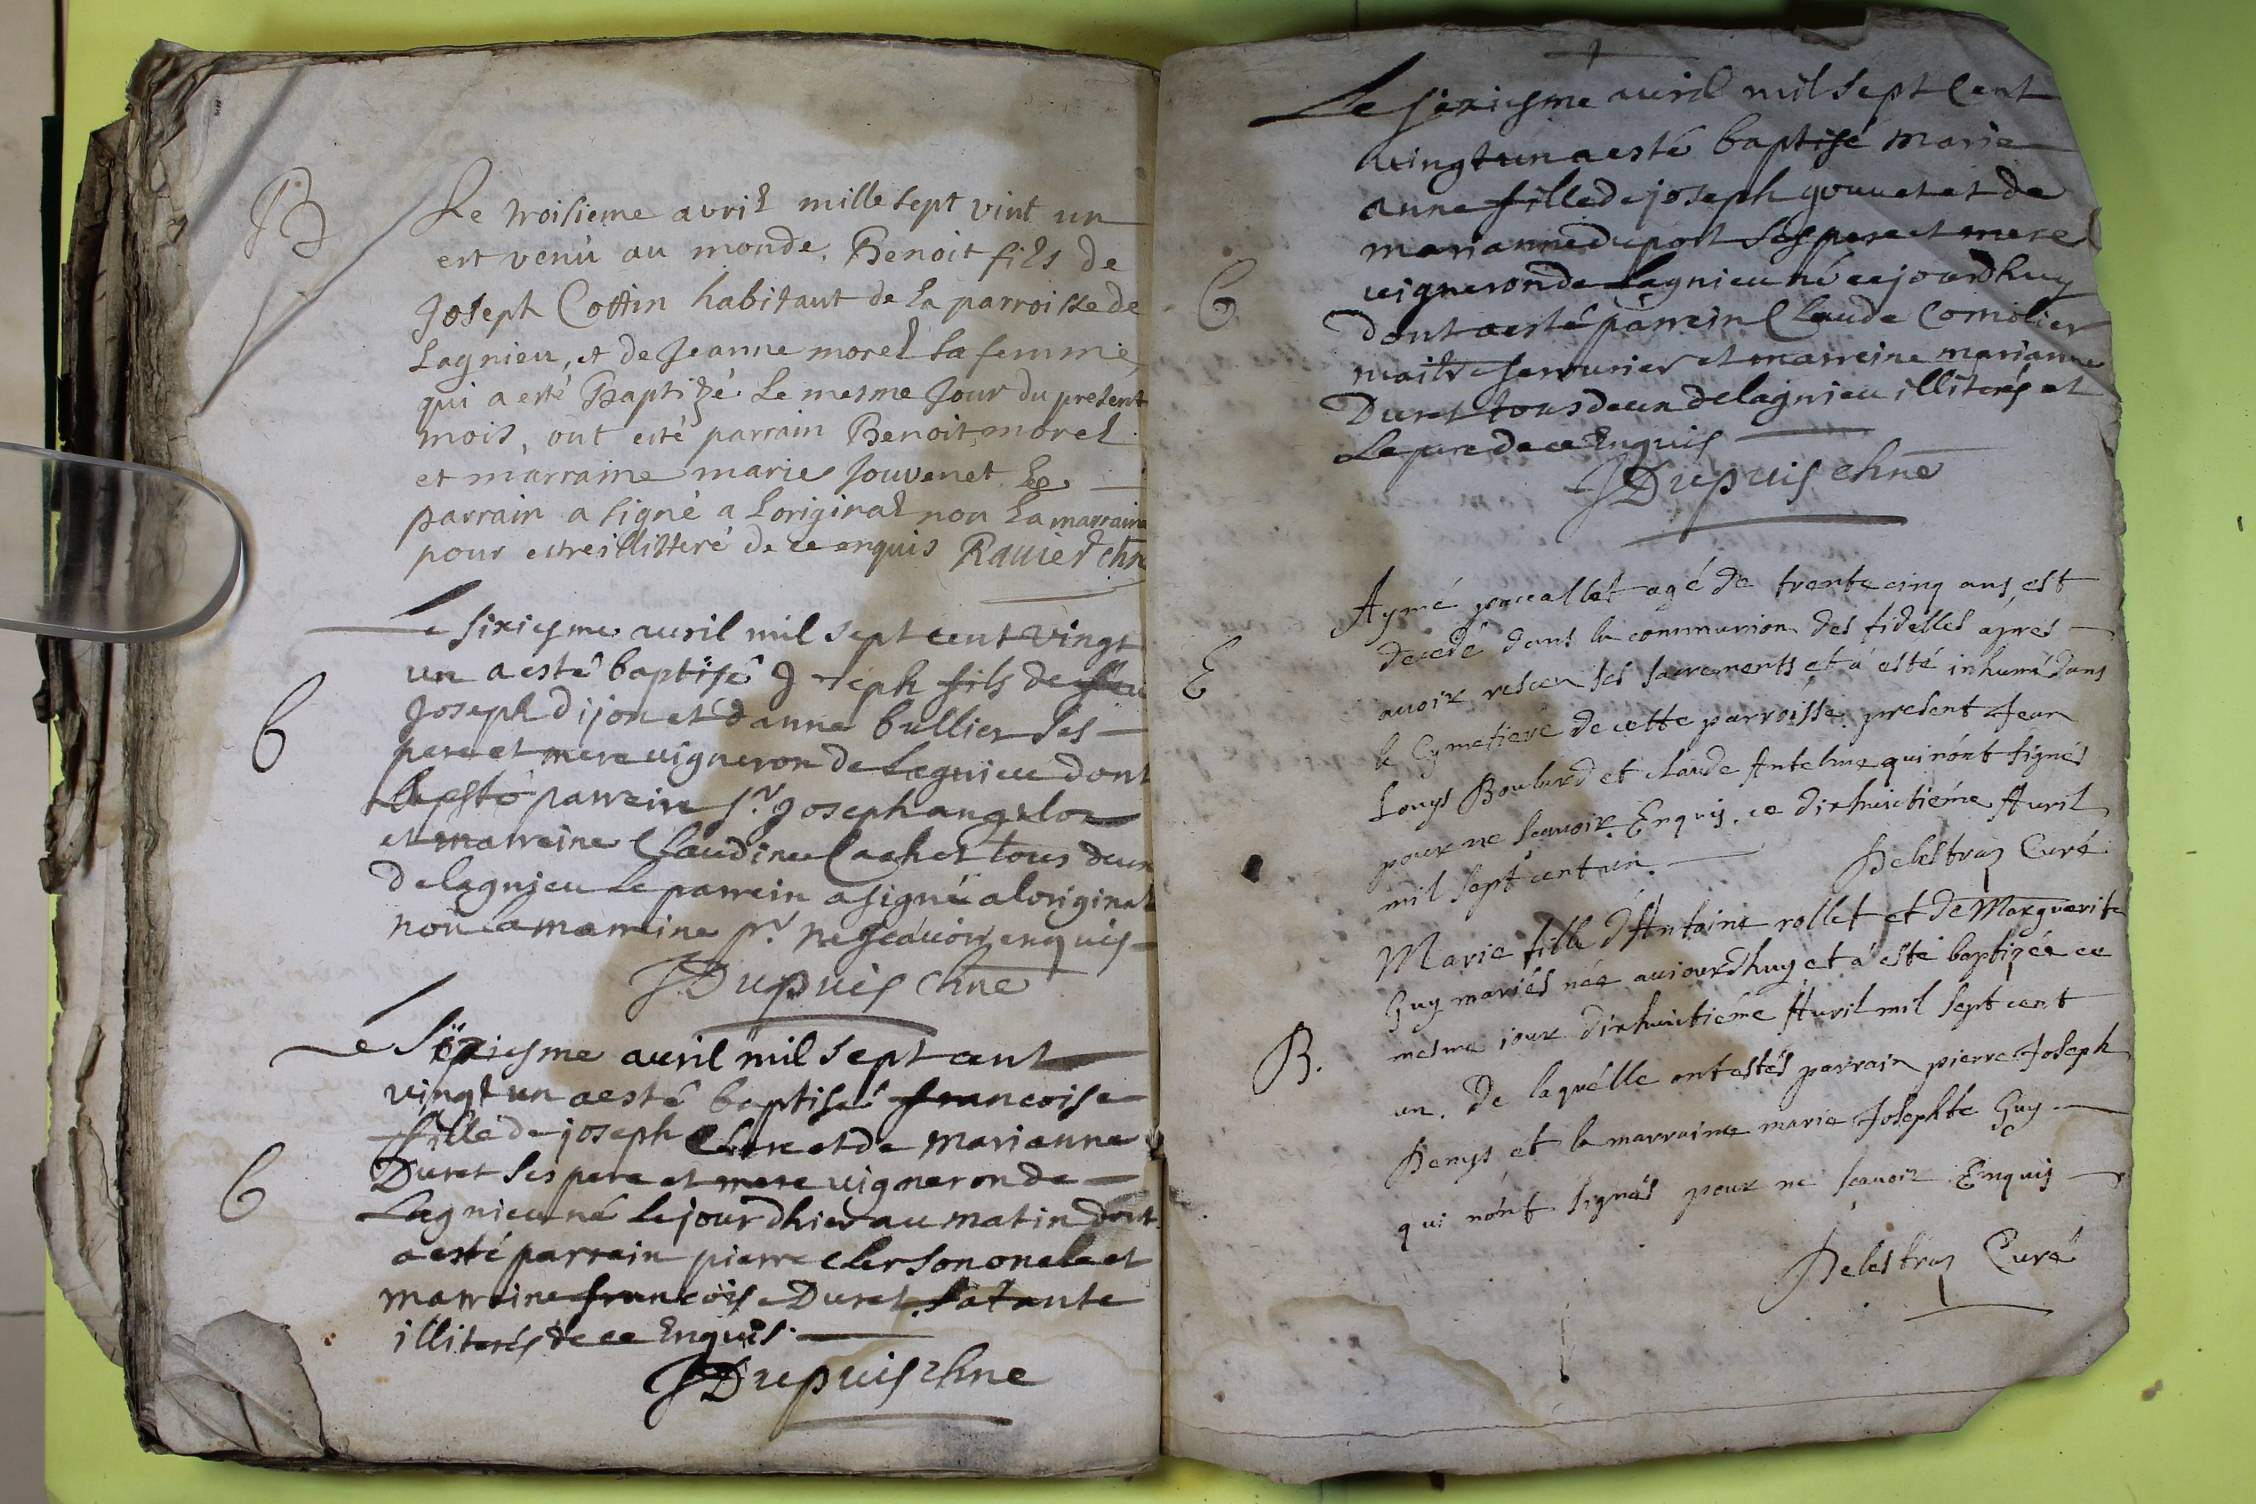 B
Le troisieme avril mille sept vint un
est venu au monde, Benoit fils de
Joseph Cottin habitant de la parroisse de
Lagnieu, et de Jeanne morel sa femme,
qui a esté Baptizé le mesme Jour du present
mois, ont esté parrain Benoit morel
et marraine marie Jouvenet. Le
parrain a signé a Loriginal non la marraine
pour estre illitteré de ce enquis Ravier chne
Le sixiesme auril mil sept cent vingt
un a esté baptisé Joseph fils de feu
Joseph dijon et danne bullier ses
B
pere et mere uigneron de Lagnieu dont
a esté parrein sr. Joseph angelot
et marreine Claudine Cachet tous deux
de lagnieu le parrein a signé a loriginal
non la marreine pr. ne scauoir enquis
J Dupuis chne
Le sixiesme auril mil sept cent
vingt un a esté baptisé francoise
fille de joseph Clerc et de Marianne
B
Duret ses pere et mere uigneron de
Lagnieu né le jour dhier au matin dont
a esté parrain pierre clerc son oncle et
marreine francoise Duret sa tante
illiterés de ce Enquis.
J Dupuis chne
Le sixiesme auril mil sept Cent
vingt un a esté baptisé Marie
anne fille de joseph gouuet et de
marianne duport ses pere et mere
B
uigneron de Lagnieu né ce jourdhuy
dont a esté parrein Claude Comolier
maitre serrurier et marreine marianne
Duret tous deux de lagnieu illiterés et
Le pere de ce Enquis
J Dupuis chne
Aymé agé de trente cinq ans, est
decedé dans la communion des fidelles apres
E
auoir resceu ses sacrements, et a esté inhumé dans
le Cymetiere de cette parroisse. present Jean
Louys Boulard et claude Antelme qui n'ont signés
pour ne scauoir. Enquis. ce dixhuictiéme Auril
mil sept cent un.
Delestraz Curé.
Marie fille d'Antoine rollet et de Marguerite
Guy mariés née auiourdhuy et a esté baptizée ce
B.
mesme iour dixhuictiéme Auril mil sept cent
un. de laquelle ont estés parrain pierre Joseph
Denys et la marraine marie Josephte Guy
qui n'ont signés pour ne scauoir. Enquis
Delestraz Curé